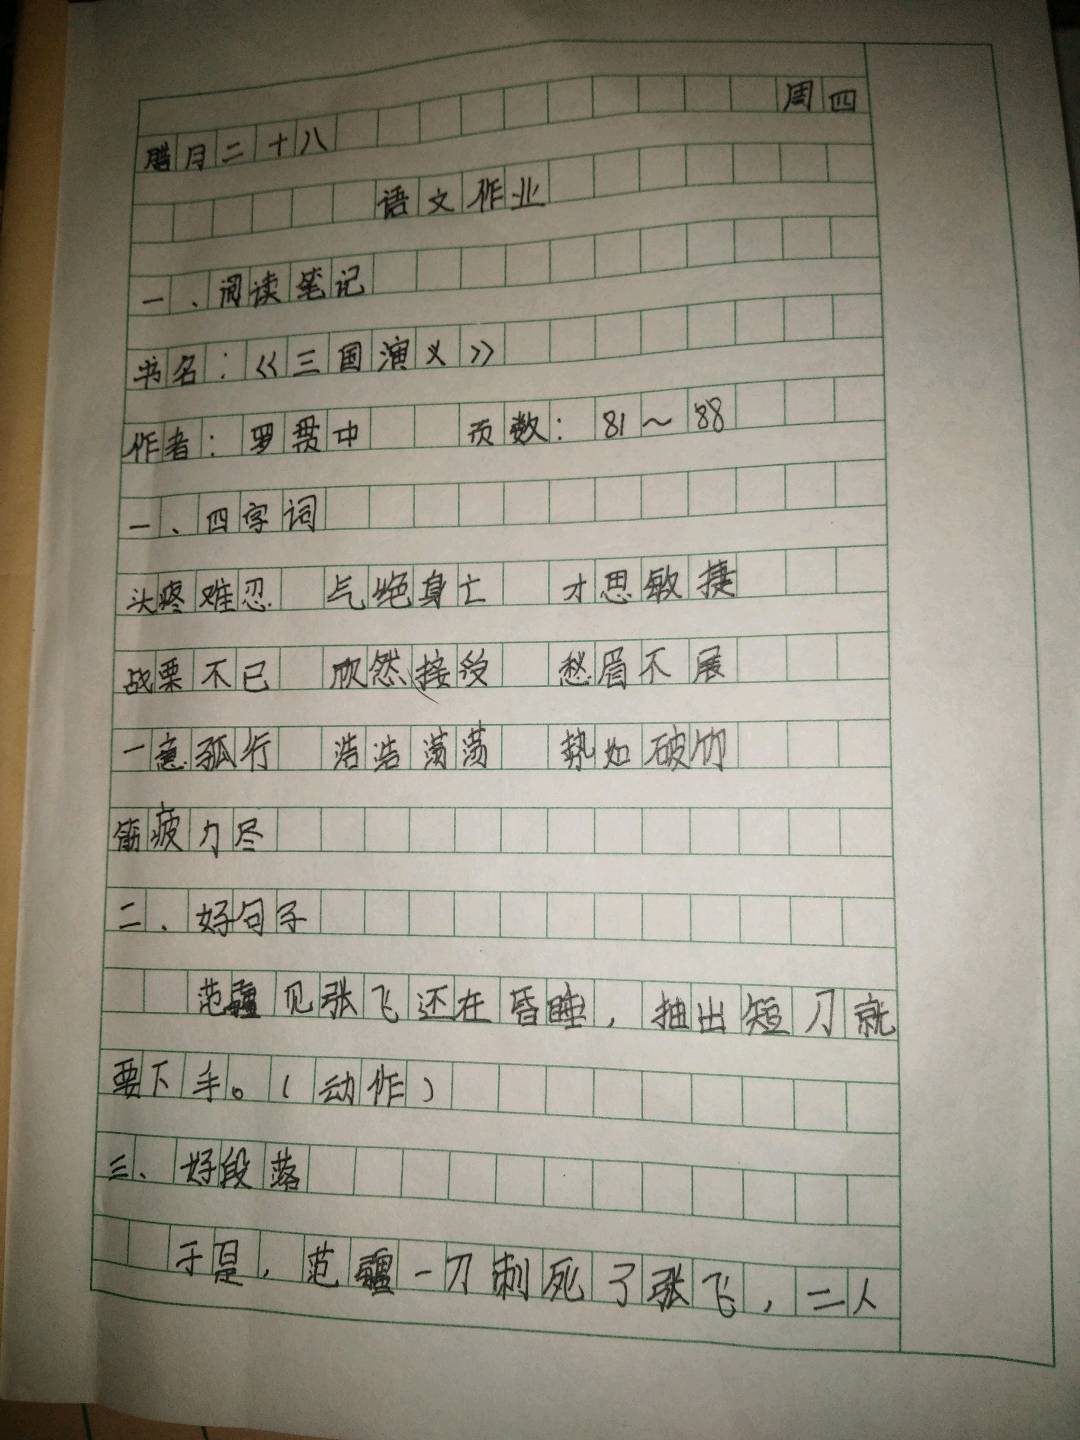 腊月二十八 周四
语文作业
一、阅读笔记
书名：《三国演义》
作者：罗贯中 页数：81～88
一、四字词
头疼难忍 气绝身亡 才思敏捷
战栗不已 欣然接受 愁眉不展
一意孤行 浩浩荡荡 势如破竹
筋疲力尽
二、好句子
范疆见张飞还在昏睡，抽出短刀就
要下手。（动作）
三、好段落
于是，范疆一刀刺死了张飞，二人